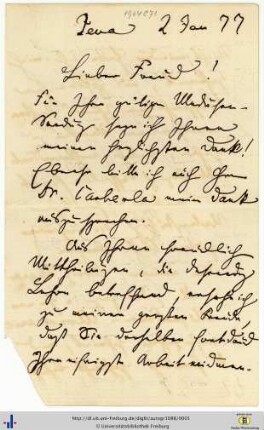 Jena 2 Jan 77
Lieber Freund!
Für Ihre gütige Medusen-
Sendung sage ich Ihnen
meinen herzlichsten Dank!
Ebenso bitte ich auch Herrn
Dr. mein Dank
auszusprechen.
Aus Ihren freundlich
Mittheilungen, die
Lehre betreffend, ersehe ich
zu meiner großen Freude,
daß Sie derselben fortdauernd
Ihre eifrigste Arbeit widmen.
http://dl.ub.uni-freiburg.de/diglit/autogr1098/0001
© Universitätsbibliothek Freiburg